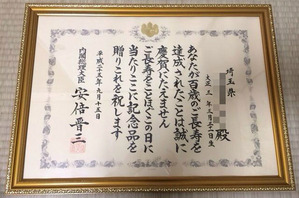 埼玉県
殿
大正三年 月 日生
あなたが百歳のご長寿を
達成されたことは誠に
慶賀にたえません
ご長寿をことほぐこの日に
当たりここに記念品を
贈りこれを祝します
平成二十五年九月十五日
内閣総理大臣 安倍晋三